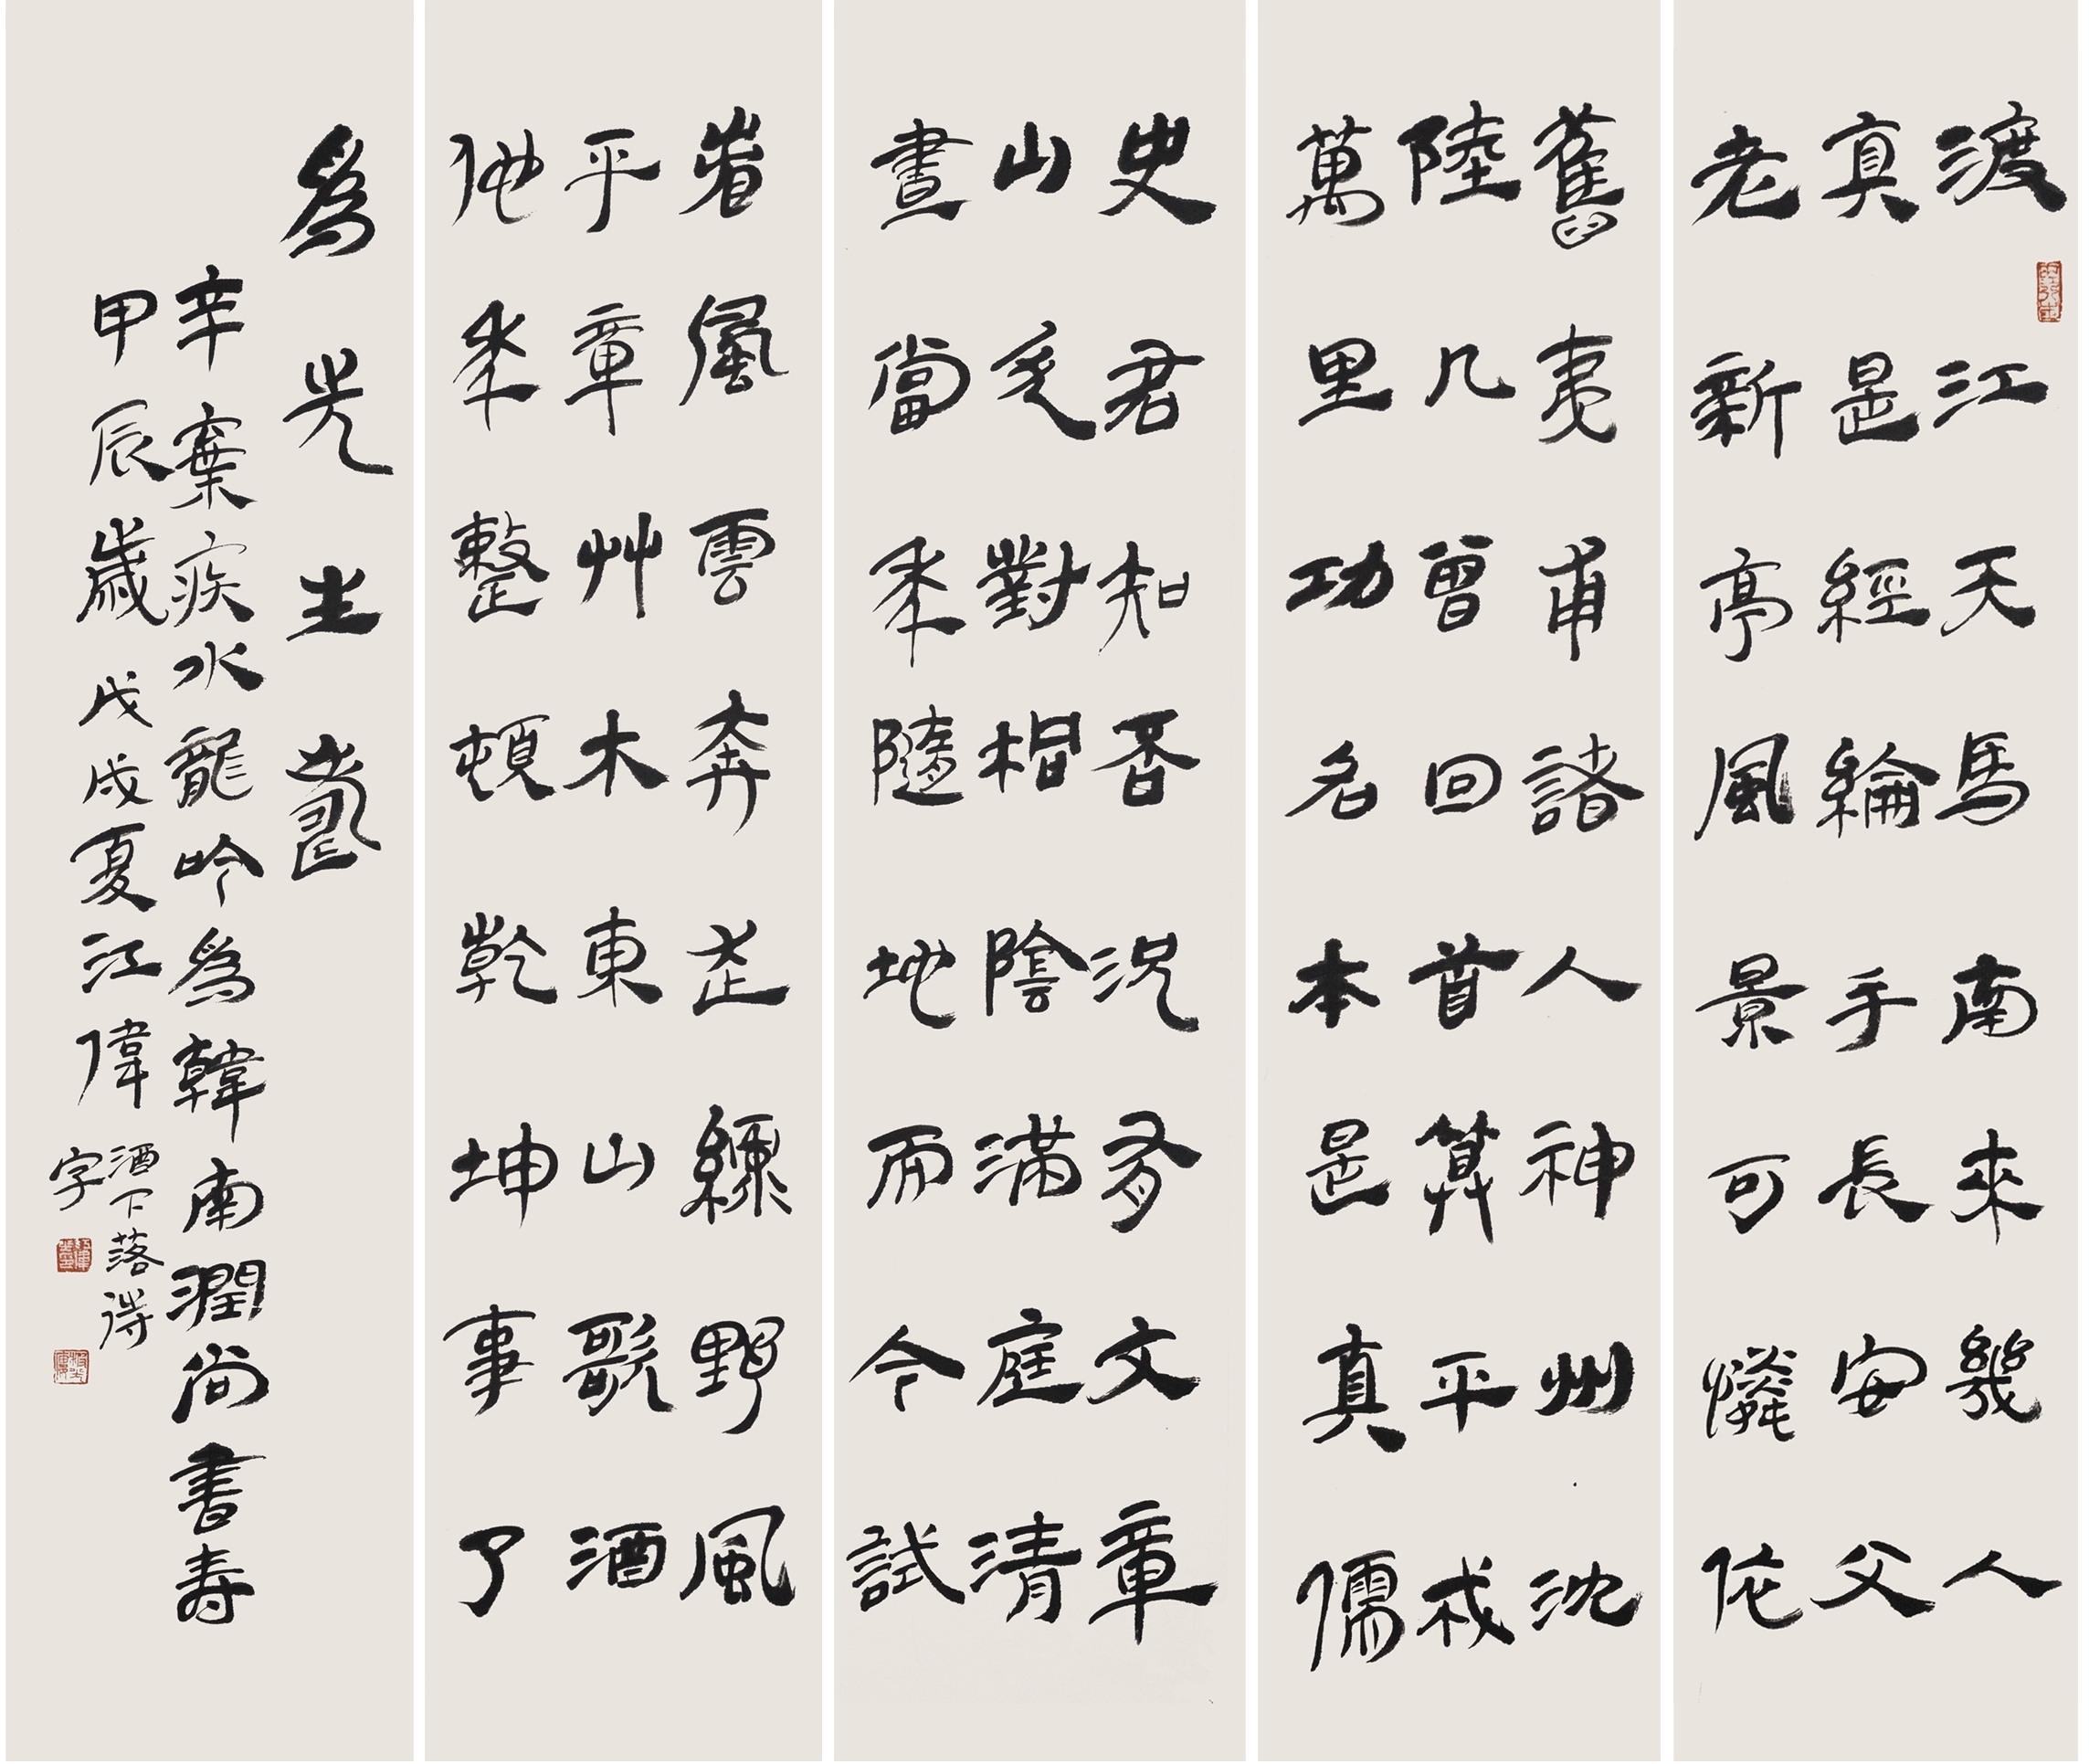 渡江天馬南來幾人
真是經綸手長安父
老新亭風景可憐依
舊夷甫諸人神州沈
陸几曾回首算平戎
萬里功名本是真儒
史君知否況有文章
山斗對桐陰滿庭清
晝當年隨地而今試
看風雲奔走綠野風
平章艸木東山歌酒
他年整頓乾坤事了
為先生壽
辛棄疾水龍吟為韓南澗尚書壽
甲辰歲戊戌夏江偉
酒下落得
字